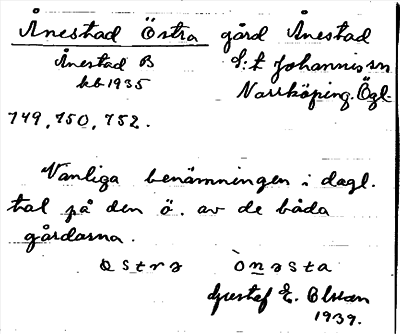 Ånestad Östra gård Ånestad
Ånestad B S:t Johannis sn
kb 1935 Norrköping. Ögl.
749, 750, 752.
Vanliga benämningen i dagl.
tal på den ö. av de båda
gårdarna.
ɵstrə ònəsta
Gustaf E. Olsson
1939.